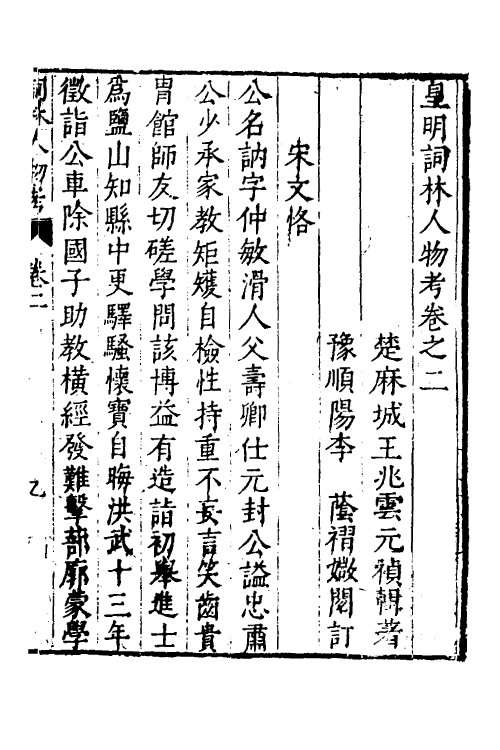 皇明詞林人物考卷之二
楚麻城王兆雲元禎輯著
豫順陽李 蔭襀嫩閱訂
宋文恪
公名訥字仲敏滑人父壽卿仕元封公謚忠肅
公少承家教矩矱自檢性持重不妄言笑齒貴
胄館師友切磋學問該博益有造詣初舉進士
為鹽山知縣中更驛騷懷寶自晦洪武十三年
徵詣公車除國子助教橫經發難擊部廓蒙學
詞林人物考 卷二 乙